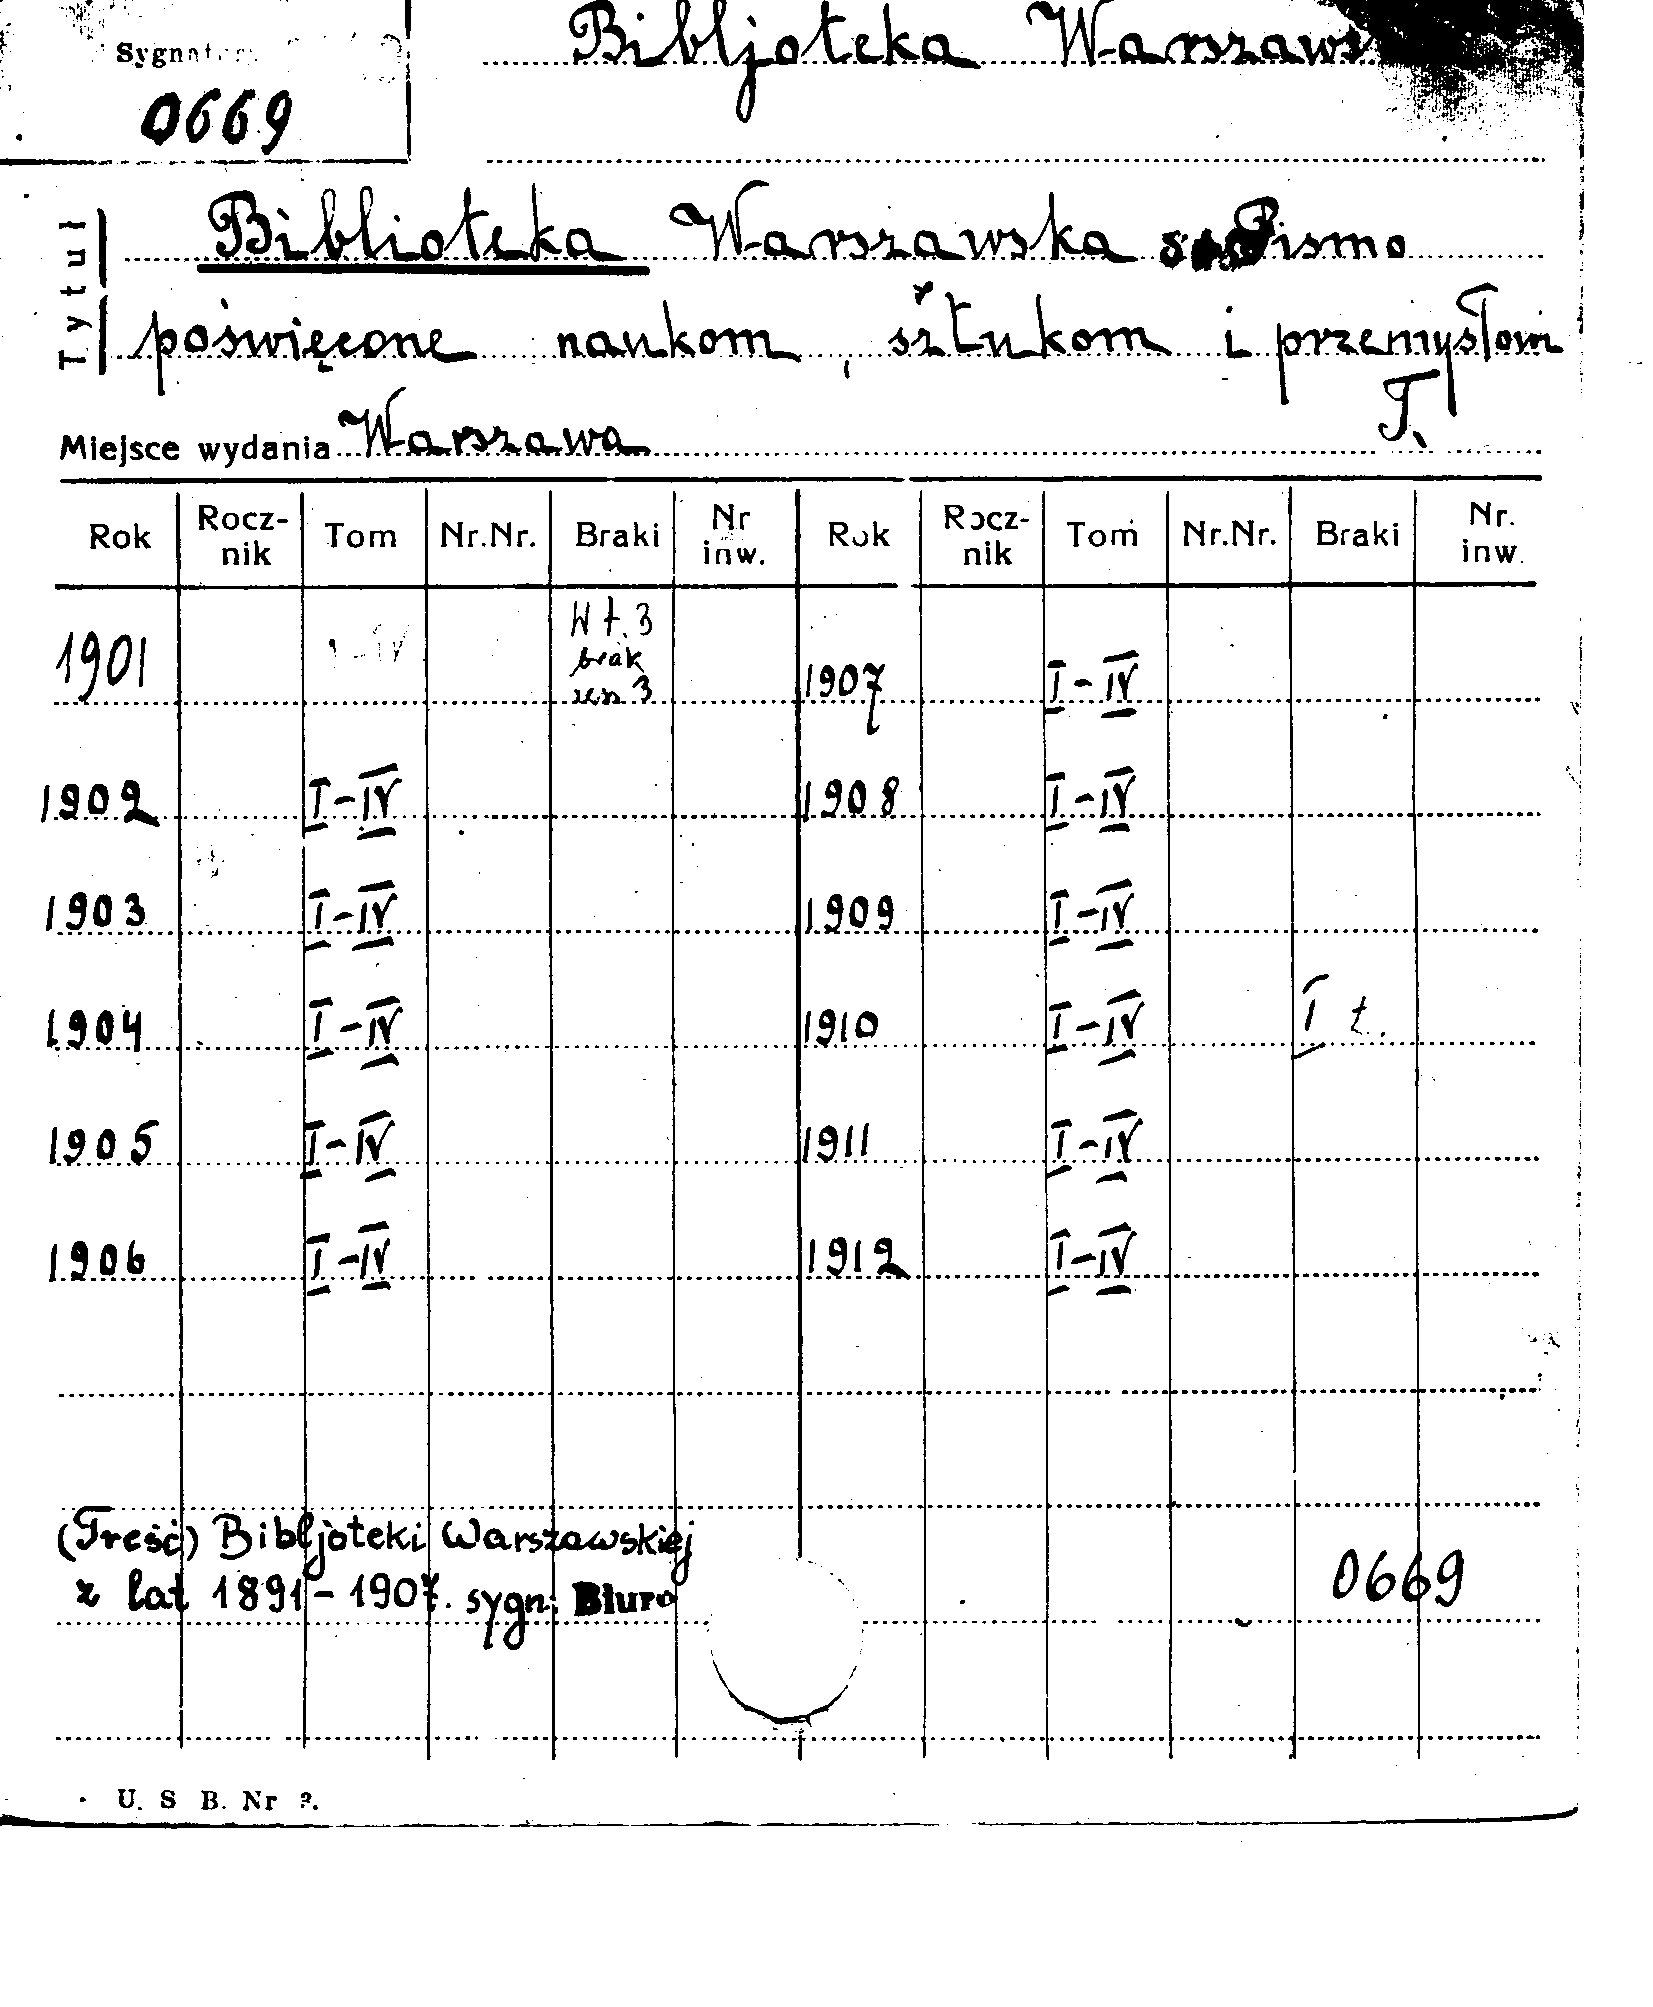 Sygnatura
0669
Bibljoteka Warszaws
Tytuł
Biblioteka Warszawska Pismo
poświęcone naukom, sztukom i przemysłowi
T.
Miejsce wydania Warszawa
Rok Rocz-nik Tom Nr.Nr. Braki Nr inw. Rok Rocz-nik Tom Nr.Nr. Braki Nr. inw.
1901 I-IV W t. 3 brak 3 1907 I-IV
1902 I-IV 1908 I-IV
1903 I-IV 1909 I-IV
1904 I-IV 1910 I-IV I t.
1905 I-IV 1911 I-IV
1906 I-IV 1912 I-IV
(Treść) Bibljoteki Warszawskiej
z lat 1891-1907. sygn: Biuro
0669
U. S B. Nr